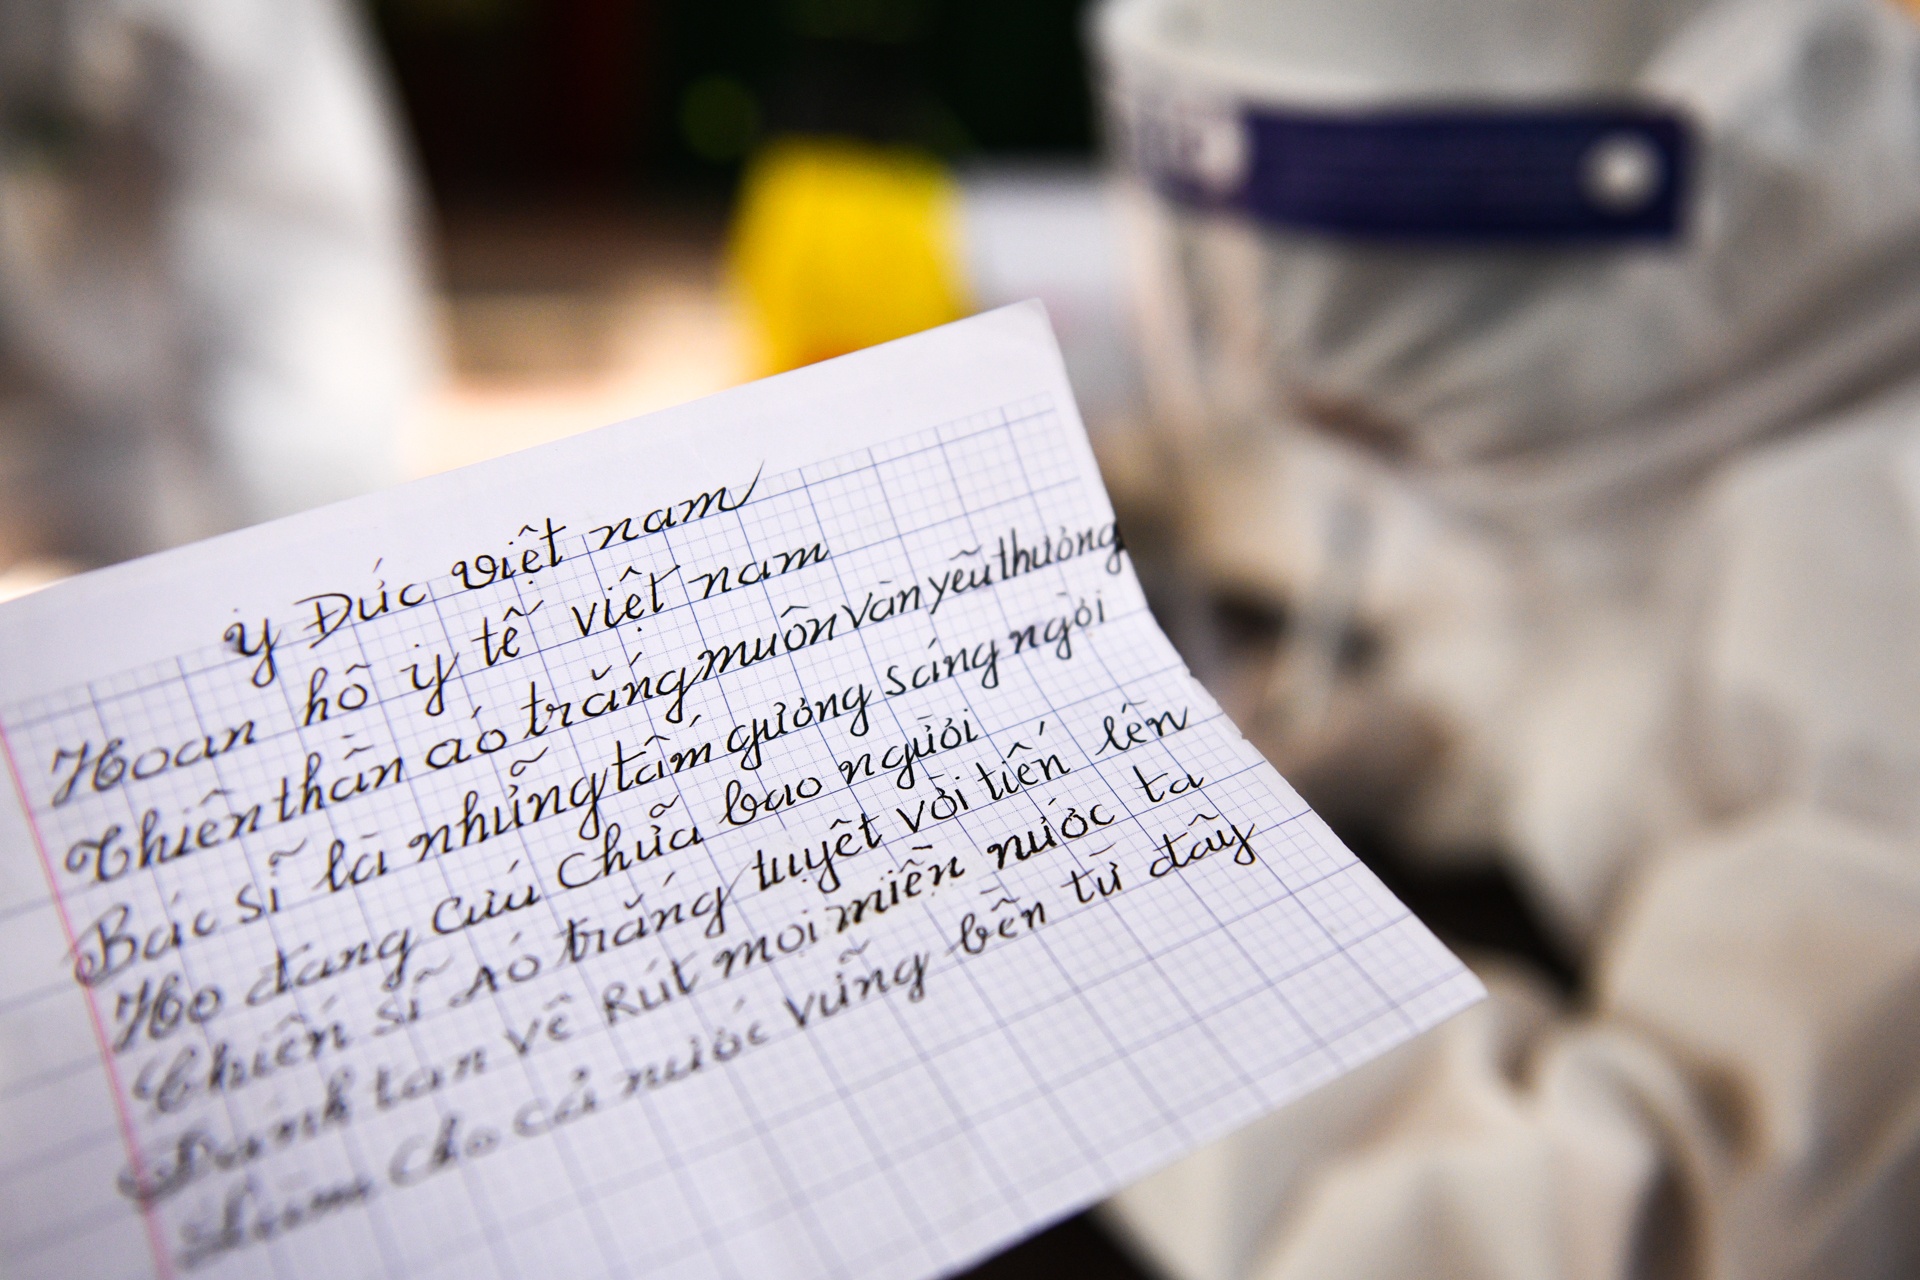 Y Đức Việt nam
Hoan hô y tế việt nam
Thiên thần áo trắng muôn vàn yêu thương
Bác sĩ là những tấm gương sáng ngời
Họ đang cứu chữa bao người
Chiến sĩ Áo trắng tuyệt vời tiến lên
Đánh tan vê Rút mọi miền nước ta
Làm cho cả nước vững bền từ đây